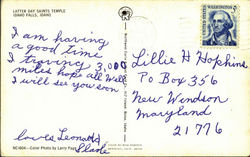 LATTER DAY SAINTS TEMPLE
IDAHO FALLS, IDAHO
I am having
a good time
I traving 3,000
miles hope all well
I will see you soon
loves Leonard
Slade
NC1604—Color Photo by Larry
Lillie H Hopkins
Po Box 356
New Windson
Maryland
21776